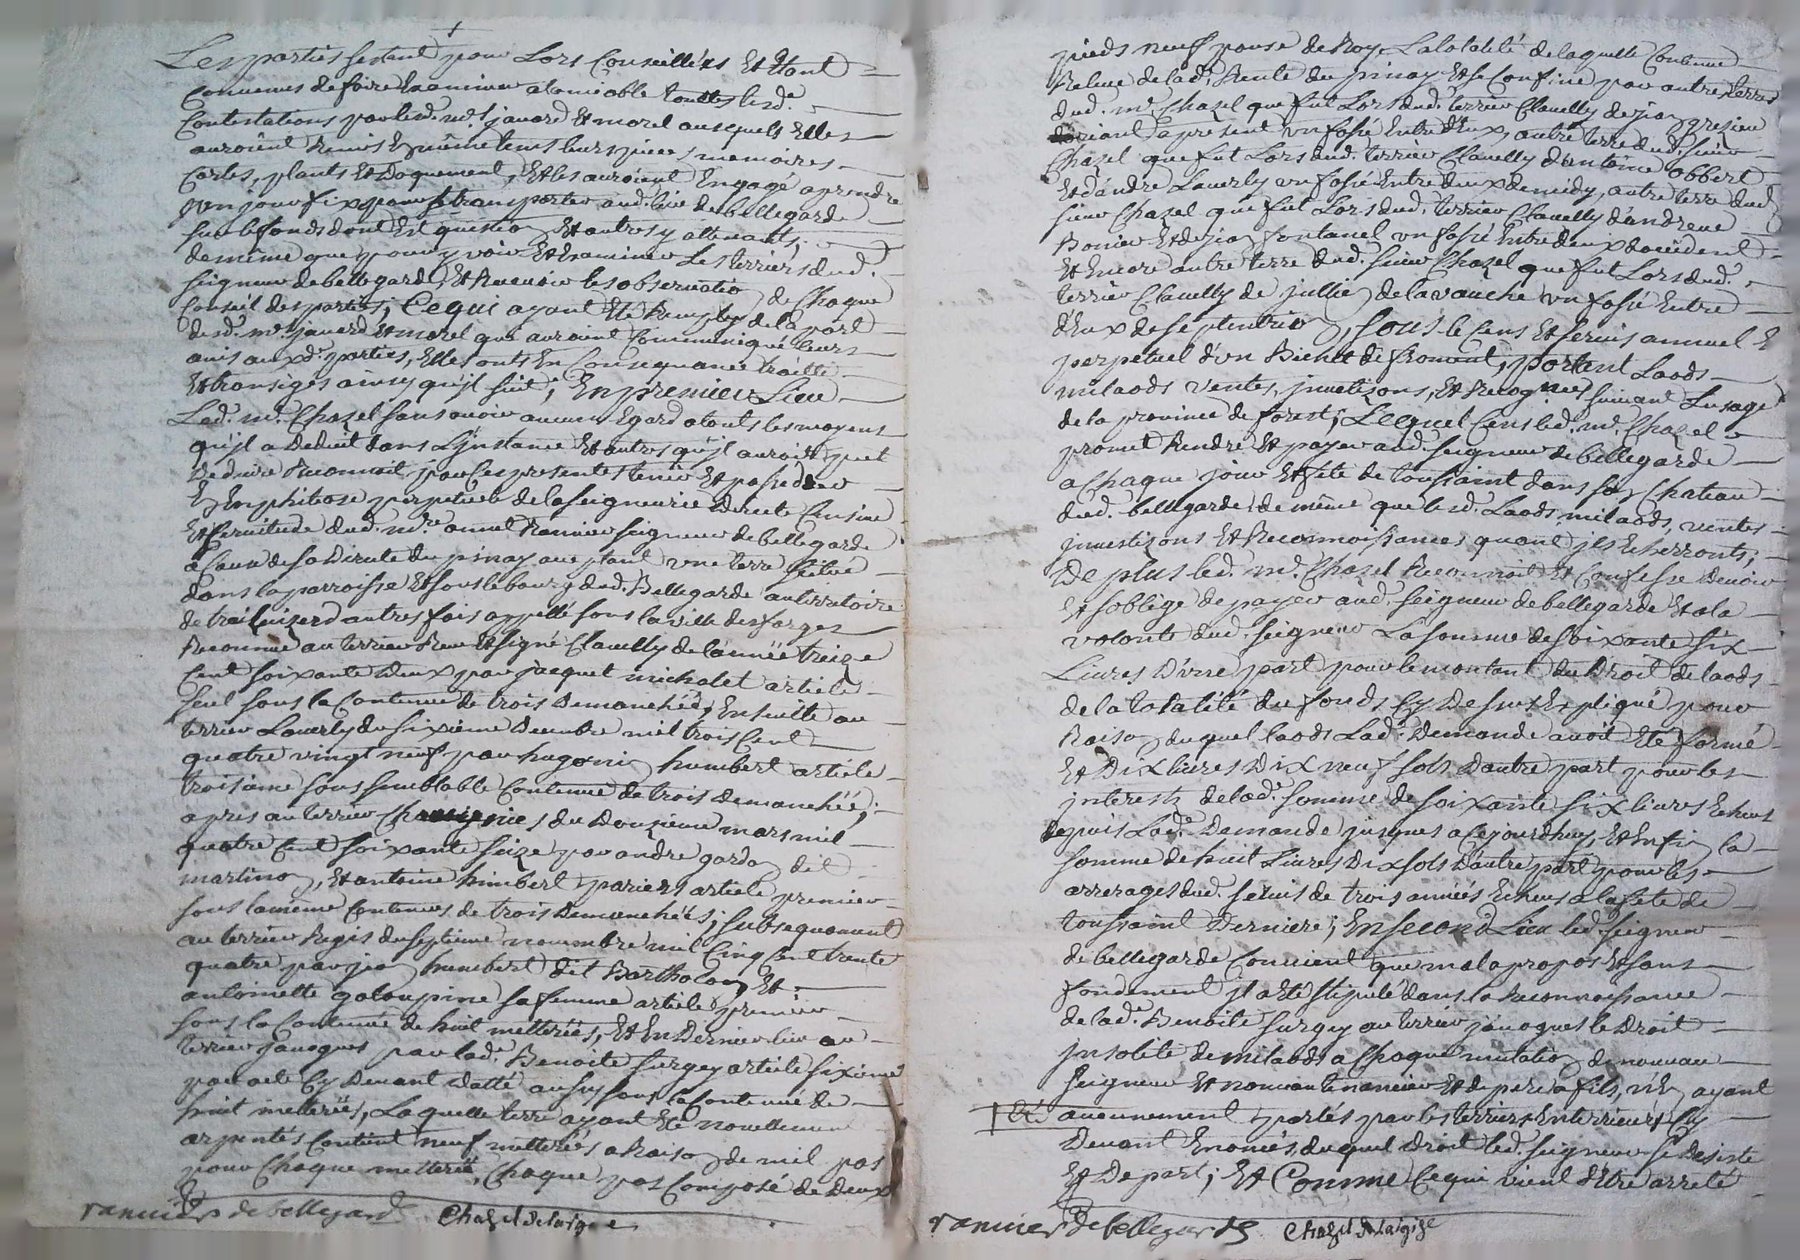 Les parties se sont pour Lors Conseillées Et Etant
Convenues de faire Examiner a lamiable touttes lesd.
Contestations par lesd. mrs. janard Et morel ausquels Elles
auroient Remis En même tems leurs pieces memoires
Cartes, plants Et Doquement, Et les auroient Engagé a prendre
un jour fix pour se transporter aud. lieu de bellegarde
sur le fonds dont Est question Et autres y attenants,
de même que pour y voir Et Examiner Les terriers dud.
seigneur de bellegarde, Et Recevoir les observation de Chaque
Conseil des parties; Ce qui ayant Eté Remply de la part
desd. mrs. janard Et morel qui auroient Communiqué leurs
avis auxd. parties, Elles ont En Consequence traitté
Et transigés ainsy qu'il suit; En premier Lieu
Led. mr. Chazel sans avoir aucun Egard a touts les moyens
qu'il a Deduit dans L'jnstance Et autres qu'il auroit peut
deduire Reconnoit par Ces presentes tenir Et posseder
En Emphiteose perpetuele de la seigneurie Directe Censive
Et servitude dud. mre. annet Ranvier seigneur de bellegarde
a Cause de sa Directe du pinay une terre scitue
dans la parroisse Et sous le bourg dud. Bellegarde au territoire
de autres fois appellé sous la ville des farges
Reconnue au terrier Reau Et signé Clavelly de l'année treize
Cent soixante Deux par jacquet michalet article
seul sous la Contenue de trois Demanchéé, Ensuitte au
terrier Laverly du sixième Decembre mil trois Cent
quatre vingt neuf par hugonin humbert article
troisième sous semblable Contenue de trois demanchéé;
apres au terrier du Douzieme mars mil
quatre Cent soixante seize par andre gardon dit
martinon, Et antoine himbert pariers article premier
sous la même Contenue de trois Demanchéés; subsequament
au terrier Regis du septième novembre mil Cinq Cent trente
quatre par jean humbert dit Bartholon Et
antoinette galoupine sa femme article premier
sous la Contenue de huit metterées, Et En Dernier lieu au
terrier janoques par lad. Benoite surgey article sixième
par acte Cy Devant Datté aussy sous la Contenue de
huit metterées, Laquelle terre ayant Eté nouvellement
arpentés Contient neuf metterées a Raison de mil pas
pour Chaque metterée, Chaque pas Composé de Deux
ranvier de bellegarde Chazel delaigue
pieds neuf pouse de Roy, La totalité de laquelle Contenue
Releve de lad. Rente du pinay Et se Confine par autre terre
dud. mr. Chazel que fut Lors dud. terrier Clavelly de jean
dorient apresent un fossé Entre Deux, autre terre dud. sieur
Chazel que fut Lors dud. terrier Clavelly d'antoine obbert
Et d'andre Laverly un fossé Entre deux de midy, autre terre dud.
sieur Chazel que fut Lors dud. terrier Clavelly d'andreue
Bonier Et de jean fontanel un fossé Entre deux d'occident
Et Encore autre terre dud. sieur Chazel que fut Lors dud.
terrier Clavelly de jullien delavauche un fossé Entre
d'Eux de septentrion, sous le Cens Et servis annuel Et
perpetuel d'un Bichet de froment, portant Laods
milaods ventes, jnvestizons, Et Recog.nces suivant L'usage
de la province de forest; Lequel Cens led. mr. Chazel
promet Rendre Et payer aud. seigneur de bellegarde
a Chaque jour Et fête de toussaint dans son Chateau
dud. bellegarde, de même que lesd. Laods, milaods, ventes
jnvestizons Et Reconnoissances quant jls Echerronts;
De plus led. mr. Chazel Reconnoit Et Confesse Devoir
Et s'oblige de payer aud. seigneur de bellegarde Et a la
volonté dud. seigneur La somme de soixante six
Livres D'une part pour le montant du Droit de laods
de la totalité du fonds Cy Dessus Expliqué pour
Raison duquel laods Lad. Demande avoit Eté formé
Et Dix livres Dix neuf sols D'autre part pour les
jnterests de lad. somme de soixante six livres Echeus
Depuis Lad. Demande jusques a Cejourdhuy, Et Enfin la
somme de huit Livres Dix sols D'autre part pour les
arrerages dud. servis de trois années Echeus a la fete de
toussaint Derniere; En second Lieu led. seigneur
de bellegarde Convient que mal apropos Et sans
fondement jl a Eté stipulé dans la Reconnoissance
de lad. Benoite surgey au terrier janoques le Droit
jnsolite de milaods a Chaque mutation de nouveau
seigneur Et nouveau tenancier Et de pere a fils, n'En ayant
Eté aucunement portés par les terriers Enterrieurs Cy
Devant Enoncés, duquel droit led. seigneur se Desiste
Et Depart; Et Comme Ce qui vient d'Etre arreté
ranvier de bellegarde Chazel delaigue